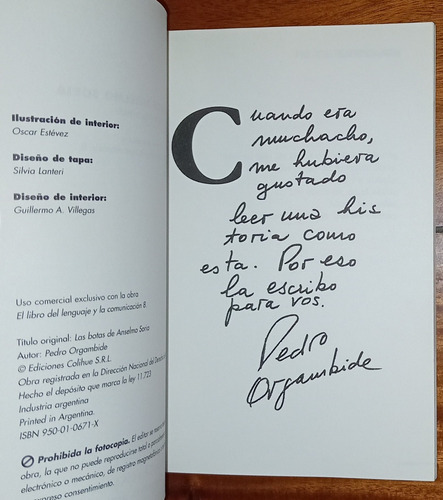 Ilustración de interior:
Oscar Estévez
Diseño de tapa:
Silvia Lanteri
Diseño de interior:
Guillermo A. Villegas
Uso comercial exclusivo con la obra
El libro del lenguaje y la comunicación 8.
Título original: Las botas de Anselmo Soria
Autor: Pedro Orgambide
© Ediciones Colihue S.R.L.
Obra registrada en la Dirección Nacional del Derecho
Hecho el depósito que marca la ley 11.723
Industria argentina
Printed in Argentina.
ISBN 950-01-0671-X
Prohibida la fotocopia. El editor se
obra, la que no puede reproducirse total o
electrónico o mecánico, de registro
expreso consentimiento.
Cuando era
muchacho,
me hubiera
gustado
leer una his
toria como
esta. Por eso
la escribo
para vos.
Pedro
Orgambide